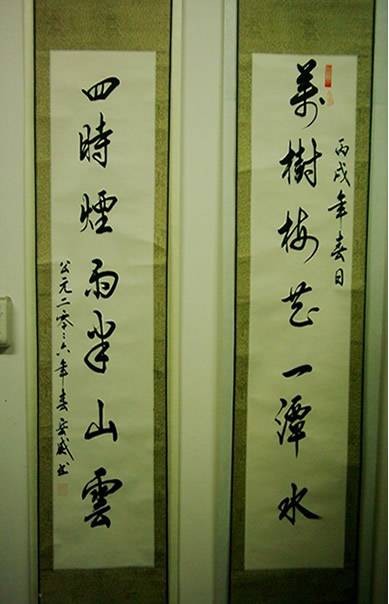 萬樹梅花一潭水
丙戌年春日
四時煙雨半山雲
公元二零零六年春岳威书